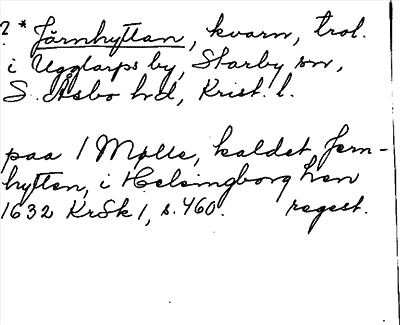 ? * Järnhyttan, kvarn, trol.
i Ugglarps by, Starby sn,
S. Åsbo hd, Krist. l.
paa 1 Mølle, kaldet Jern-
hytten, i Helsingborg Len
1632 KrSk 1, s. 460. regest.